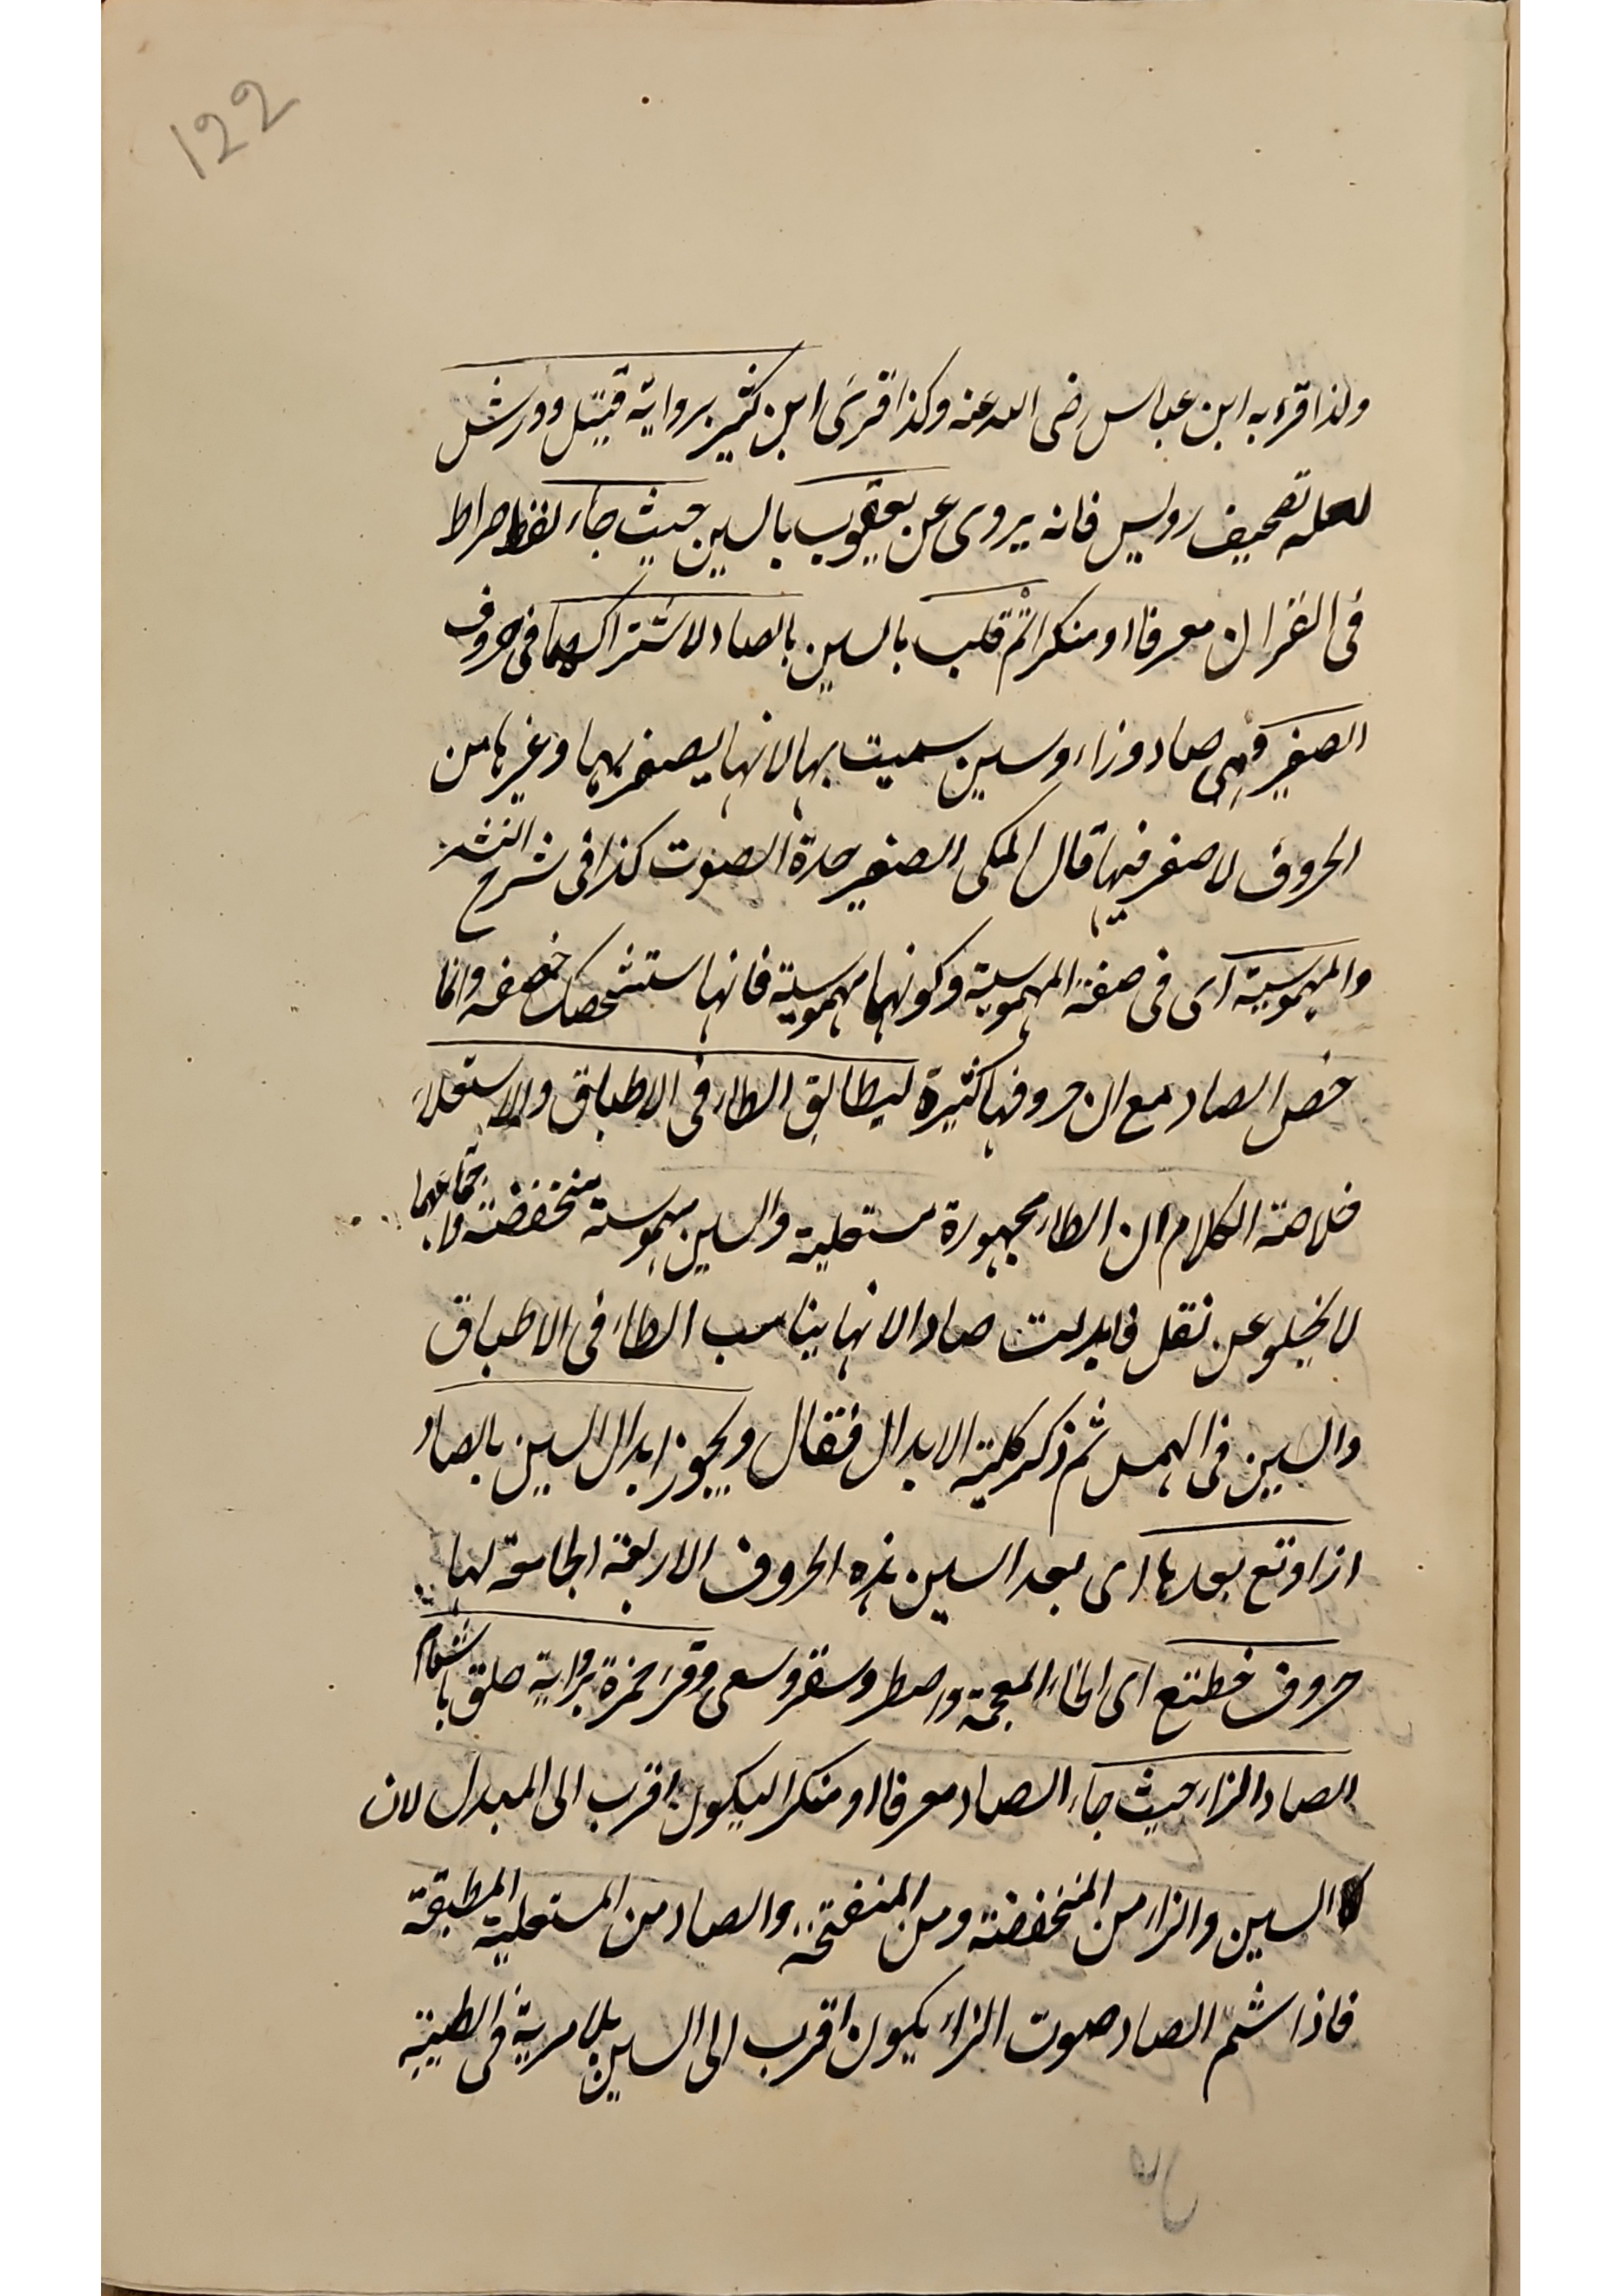 122
ولذا قرء به ابن عباس رضى الله عنه وكذا قرئ ابن كثير برواية قتبل وورش
لعله تصحيف رويس فانه يروى عن يعقوب بالسين حيث جاء لفظ صراط
فى القران معرفا او منكرا ثم قلب بالسين بالصاد لاشتراكهما فى حروف
الصفير وهى صاد وزاء وسين سميت بها لانها يصفر بهما وغيرها من
الحروف لا صفير فيها قال المكى الصفير حدة الصوت كذا فى شرح النشر
والمهموسية اى فى صفة المهموسية وكونهما مهموسية فانها ستشحثك خصفه وانما
خص الصاد مع ان حروفها كثيرة ليطابق الطاء فى الاطباق والاستعلاء
خلاصة الكلام ان الطاء مجهورة مستعلية والسين مهموسة منخفضة واجتماعهما
لا يخلو عن ثقل فابدلت صادا لانها يناسب الطاء فى الاطباق
والسين فى الهمس ثم ذكر كلية الابدال فقال ويجوز ابدال السين بالصاد
اذا وقع بعدها اى بعد السين هذه الحروف الاربعة الجامعة لها
حروف خطقع اى الخاء المعجمة واصطر وسقر وسعى وقرء حمزة برواية خلق باشمام
الصاد الزاء حيث جاء الصاد معرفا او منكرا ليكون اقرب الى المبدل لان
السين والزاء من المنخفضة ومن المنفتحة والصاد من المستعلية المطبقة
فاذا شم الصاد صوت الزاء يكون اقرب الى السين بلا مرية فى الطيبة